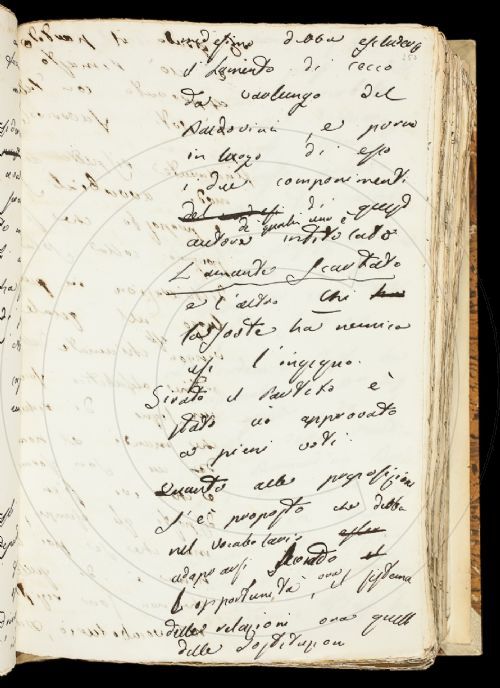 medesimo debba escludersi
il Lamento di Cecco
da Varlungo del
Baldovini, e porvi
in luogo di esso
i due componimenti
di quest
de quali uno è
autore intitolato
L'amante Scartato
e l'altro Chi
la sorte ha nemica
usi l'ingegno.
Girato il Partito è
stato ciò approvato
a pieni voti.
Quanto alle preposizioni
s'è proposto che debba
nel vocabolario
adoprarsi secondo
l'opportunità ora il sistema
delle relazioni ora quello
delle